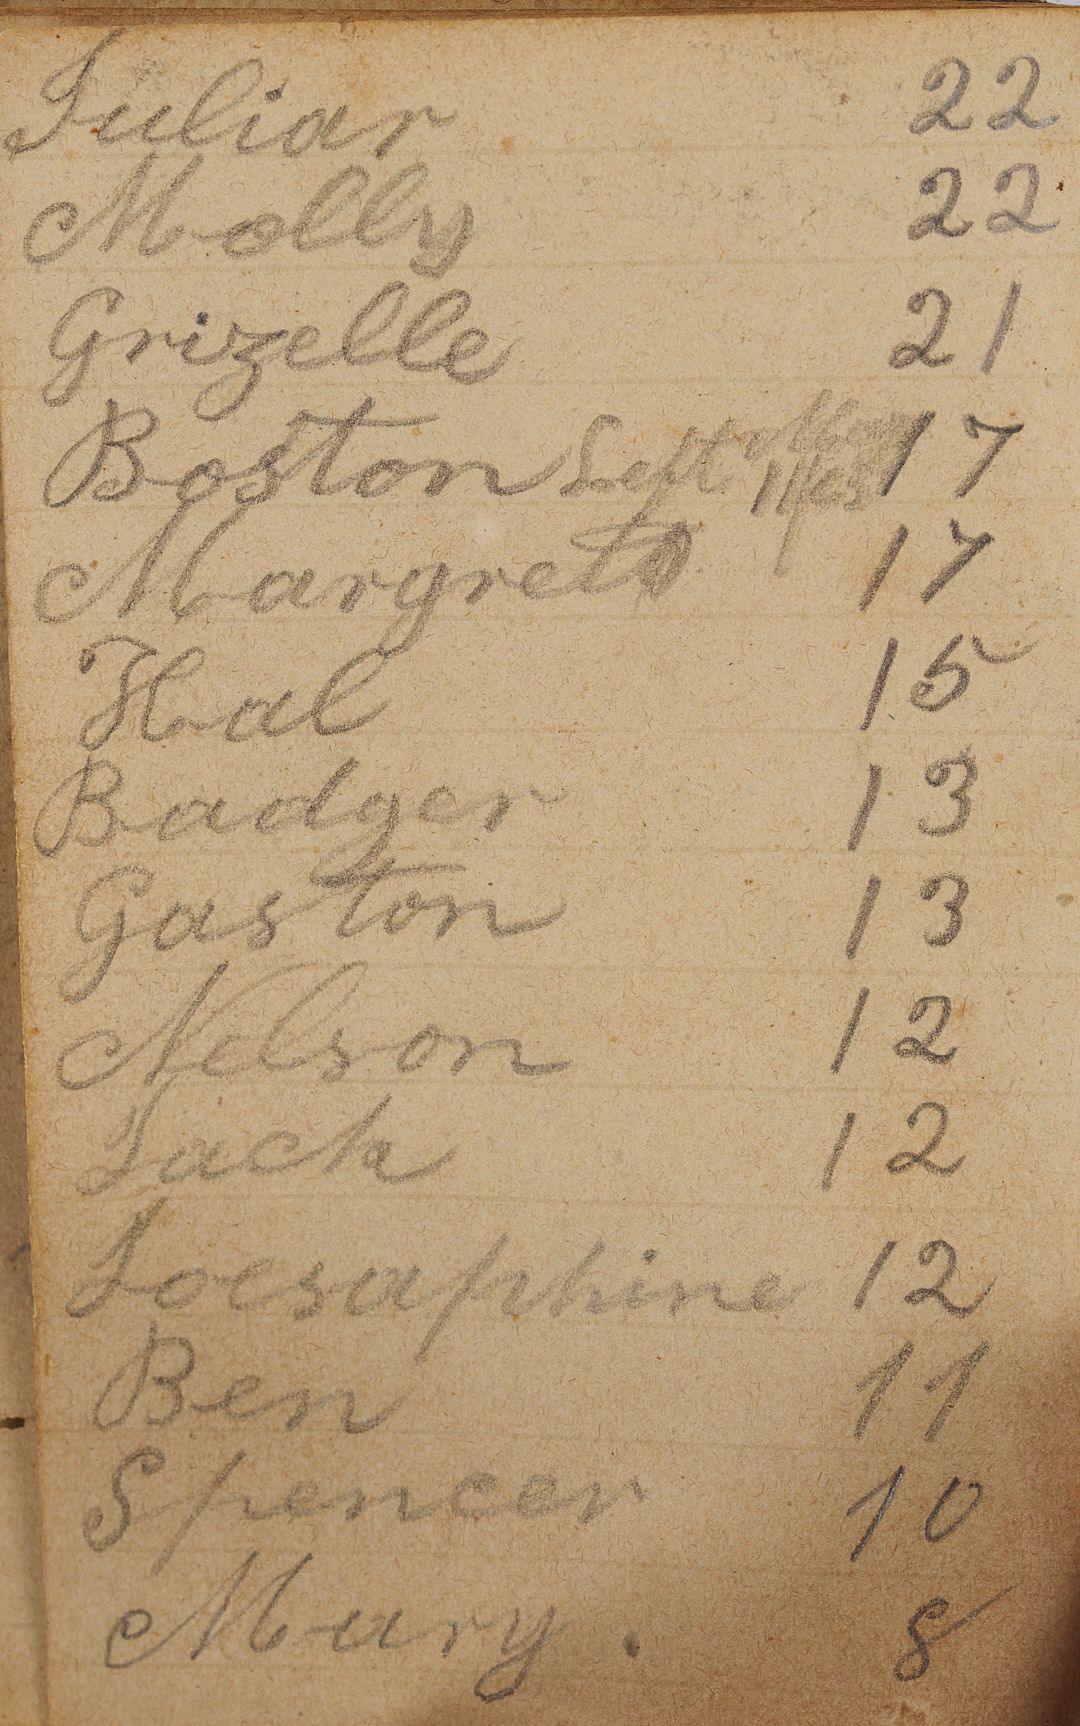 Juliar 22
Molly 22
Grizelle 21
Boston Left 17
Margret 17
Hal 15
Badger 13
Gaston 13
Nelson 12
Jack 12
Joesaphine 12
Ben 11
Spencer 10
Mary. 8